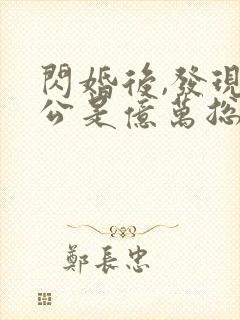 閃婚後,發現
公是億萬總
鄭長忠